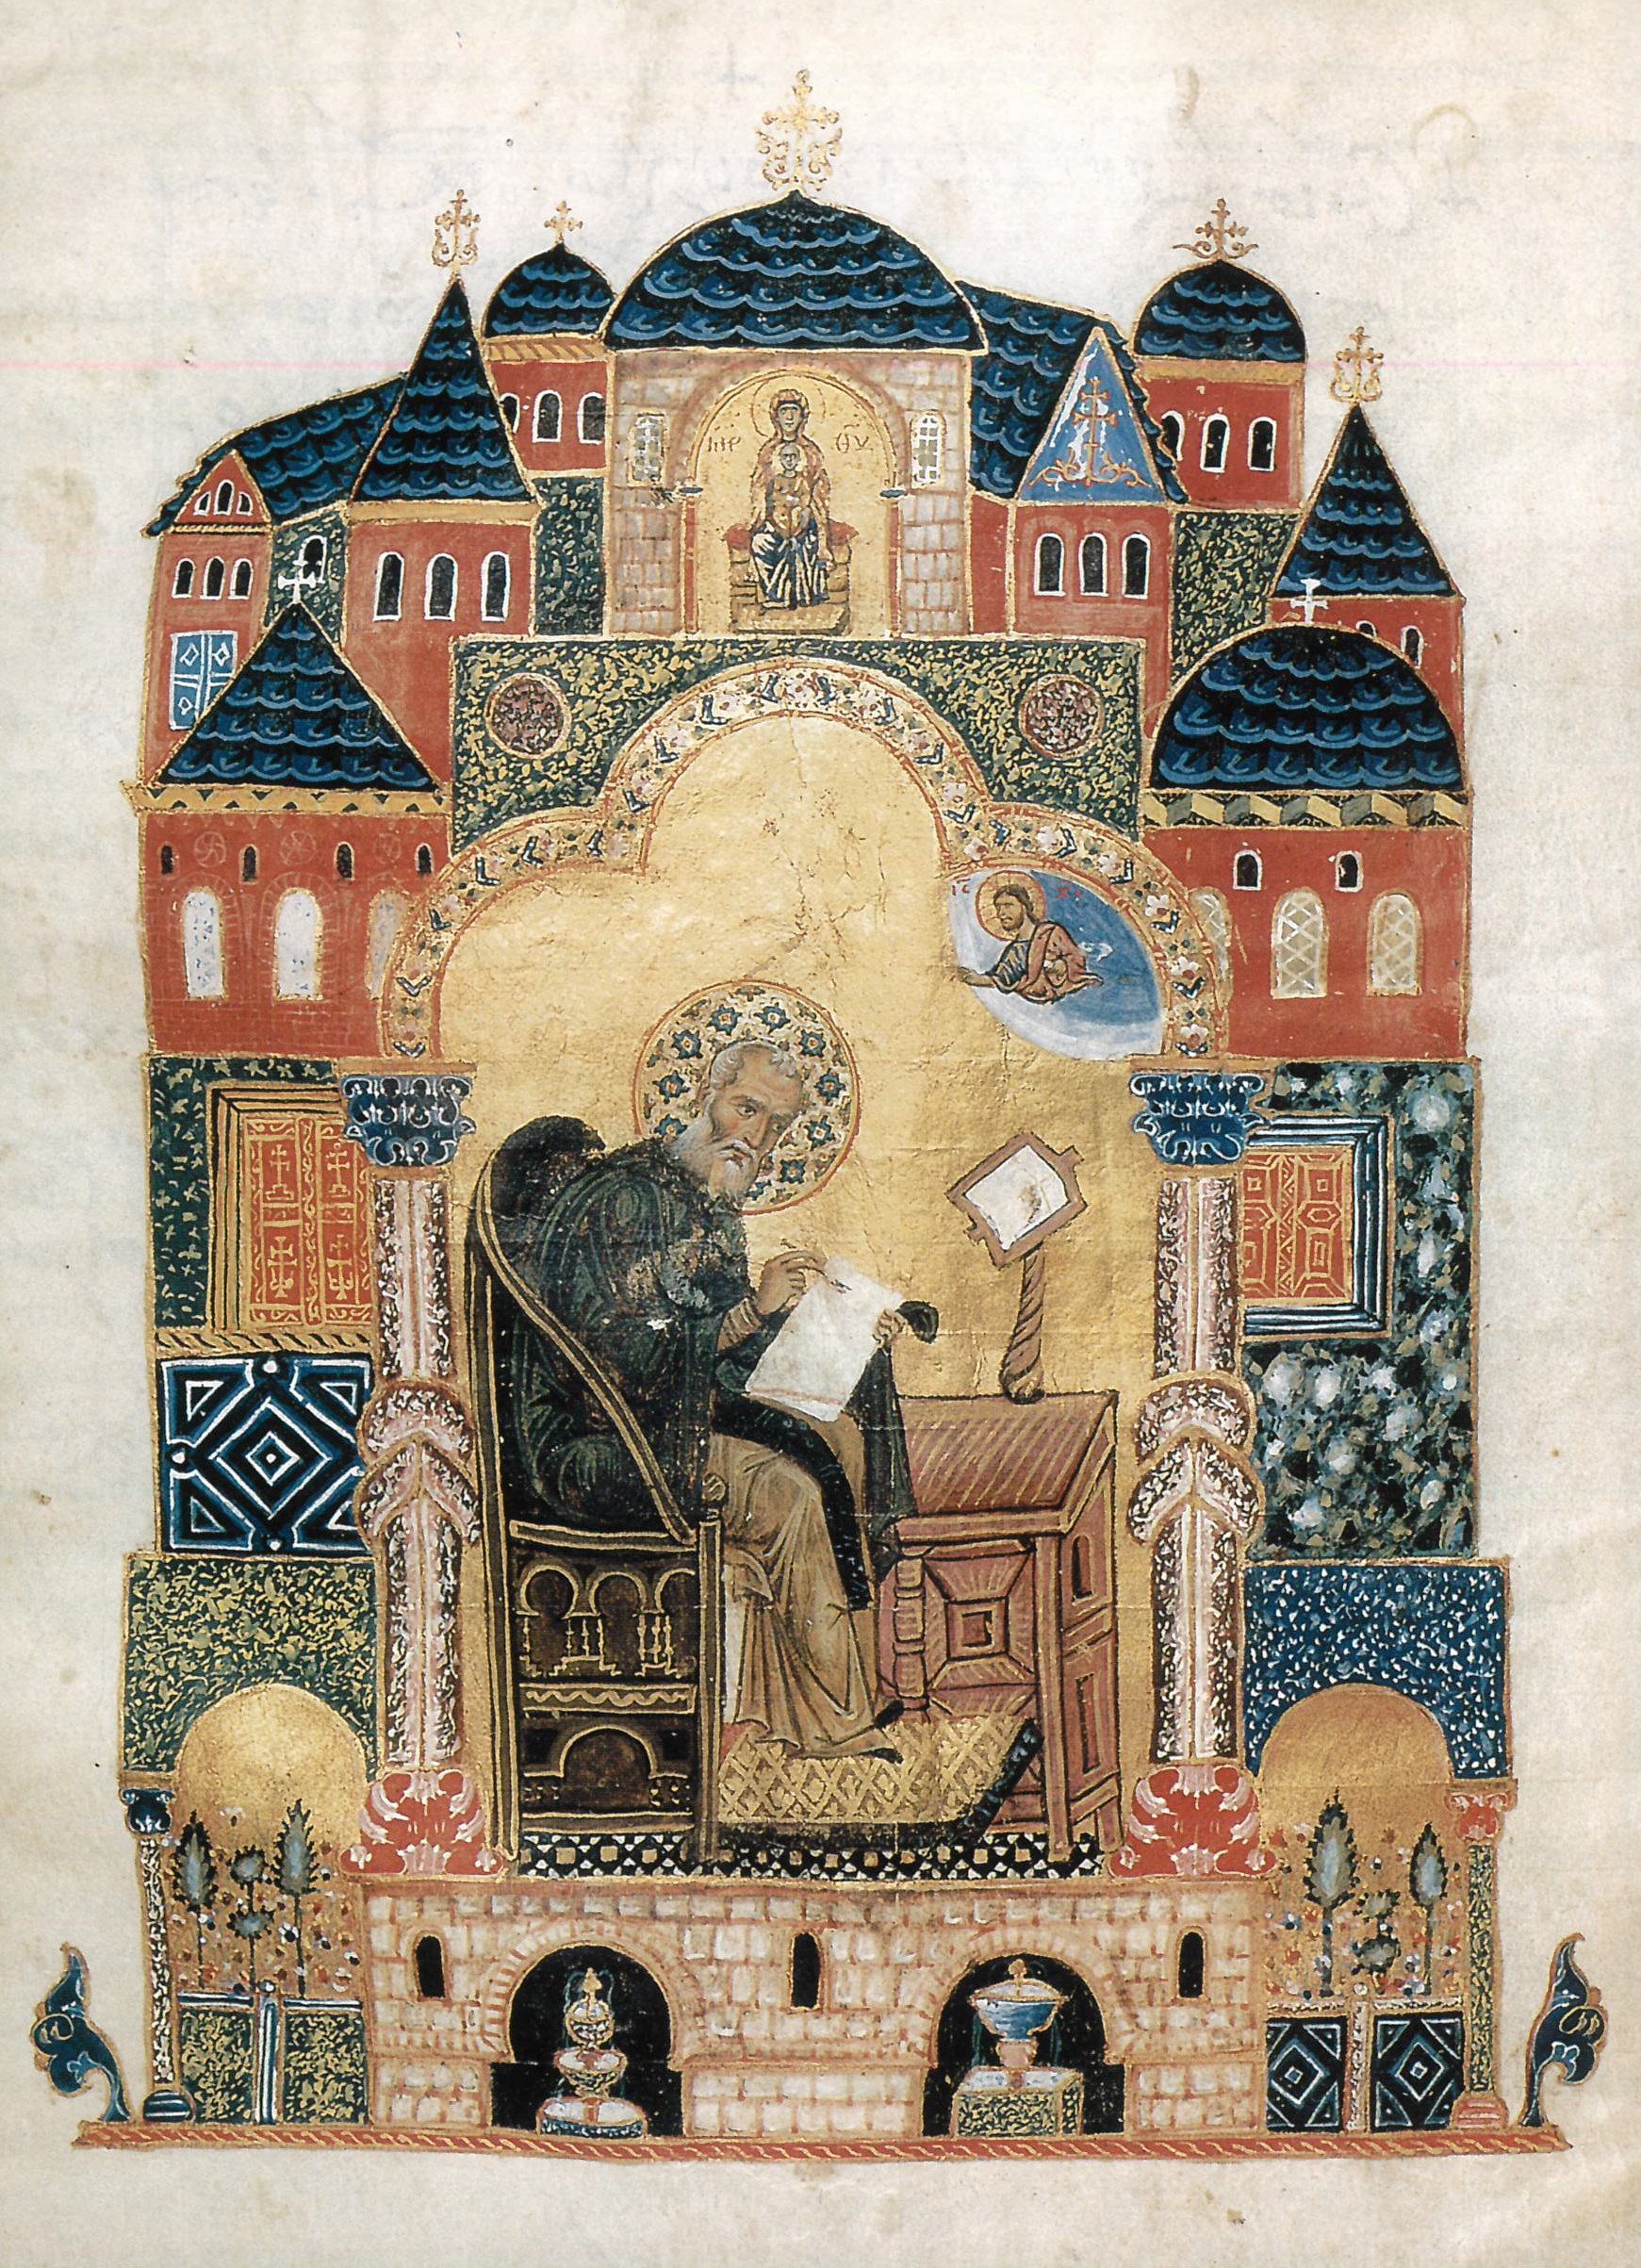 ΜΗΡ ΘΥ
ΙC ΧC